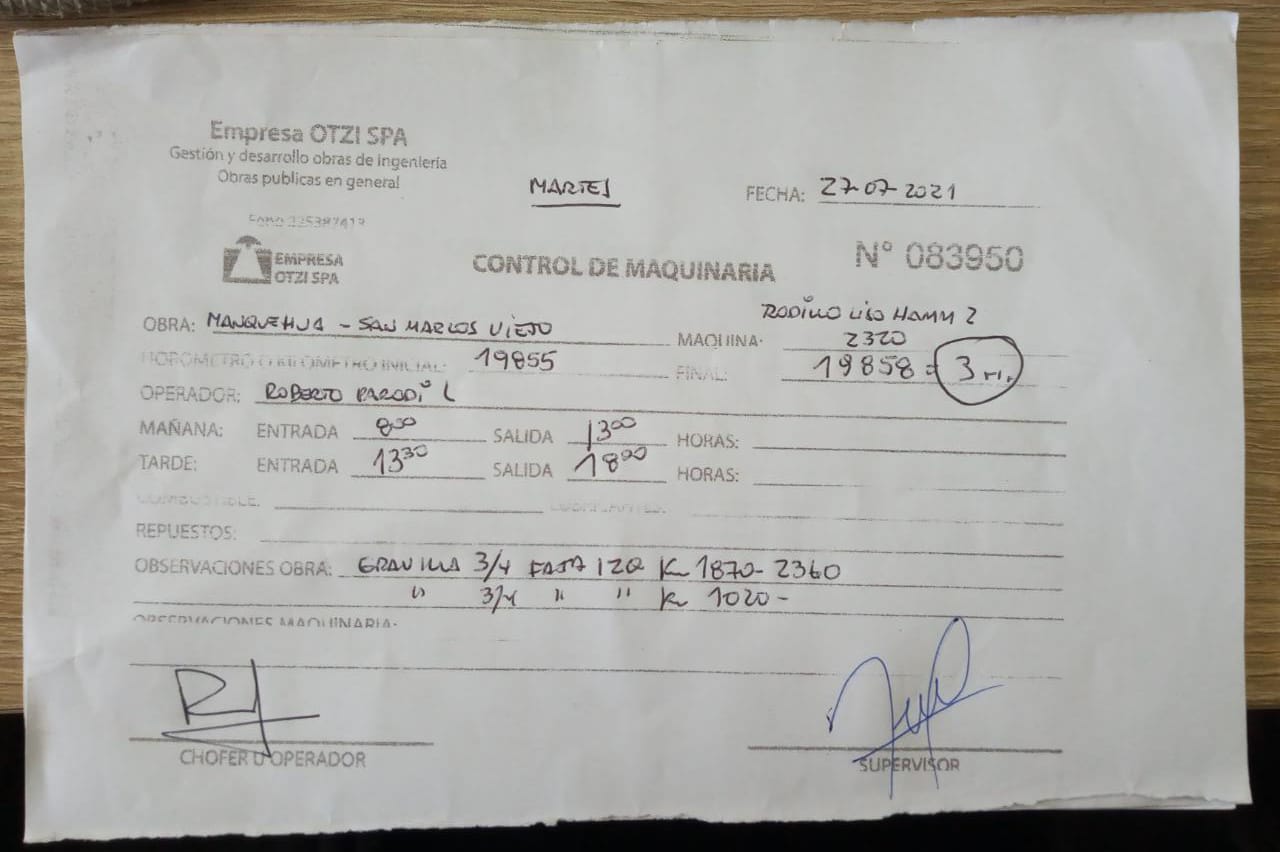 Empresa OTZI SPA
Gestión y desarrollo obras de ingeniería
Obras publicas en general
MARTES
FECHA: 27-07-2021
EMPRESA
OTZI SPA
CONTROL DE MAQUINARIA
N° 083950
RODILLO LISO HAMM 2
OBRA: MANQUEHUA - SAN MARCOS VIEJO MAQUINA: 2320
INICIAL: 19855 FINAL: 19858 = 3
OPERADOR: ROBERTO PARODI L
MAÑANA: ENTRADA 8 00 SALIDA 13 00 HORAS:
TARDE: ENTRADA 13 30 SALIDA 18 00 HORAS:
COMBUSTIBLE: LUBRICANTES:
REPUESTOS:
OBSERVACIONES OBRA: GRAVILLA 3/4 FAJA IZQ K 1870 - 2360
" 3/4 " " K 1020 -
OBSERVACIONES MAQUINARIA:
CHOFER U OPERADOR
SUPERVISOR